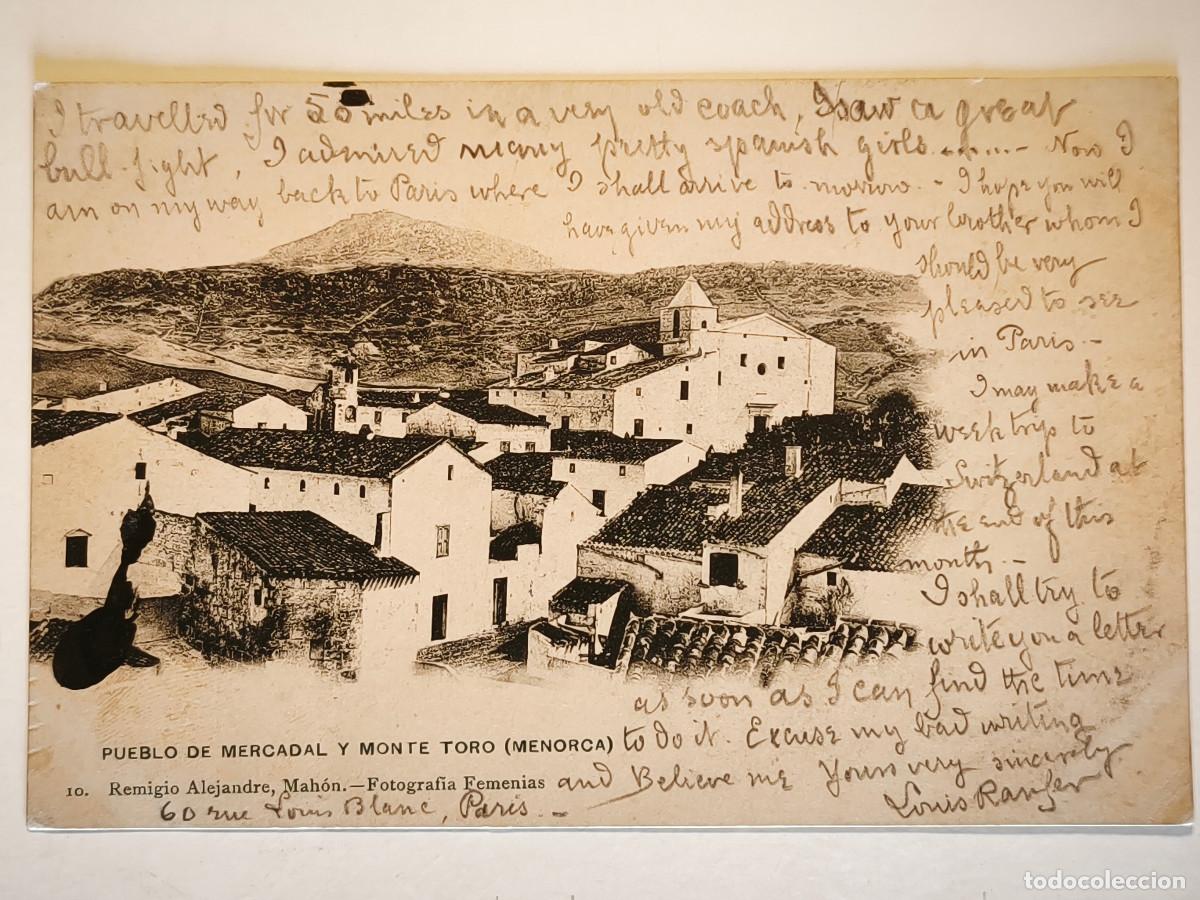 I travelled for 50 miles in a very old coach, I saw a great
bull-fight, I admired many pretty spanish girls........- Now I
am on my way back to Paris where I shall arrive to-morrow.- I hope you will
have given my address to your brother whom I
should be very
pleased to see
in Paris.-
I may make a
week trip to
Switzerland at
the end of this
month.-
I shall try to
write you a letter
as soon as I can find the time
to do it. Excuse my bad writing
and Believe me Yours very sincerely
Louis
PUEBLO DE MERCADAL Y MONTE TORO (MENORCA)
10. Remigio Alejandre, Mahón.—Fotografía Femenias
60 rue Louis Blanc, Paris.-
todocoleccion